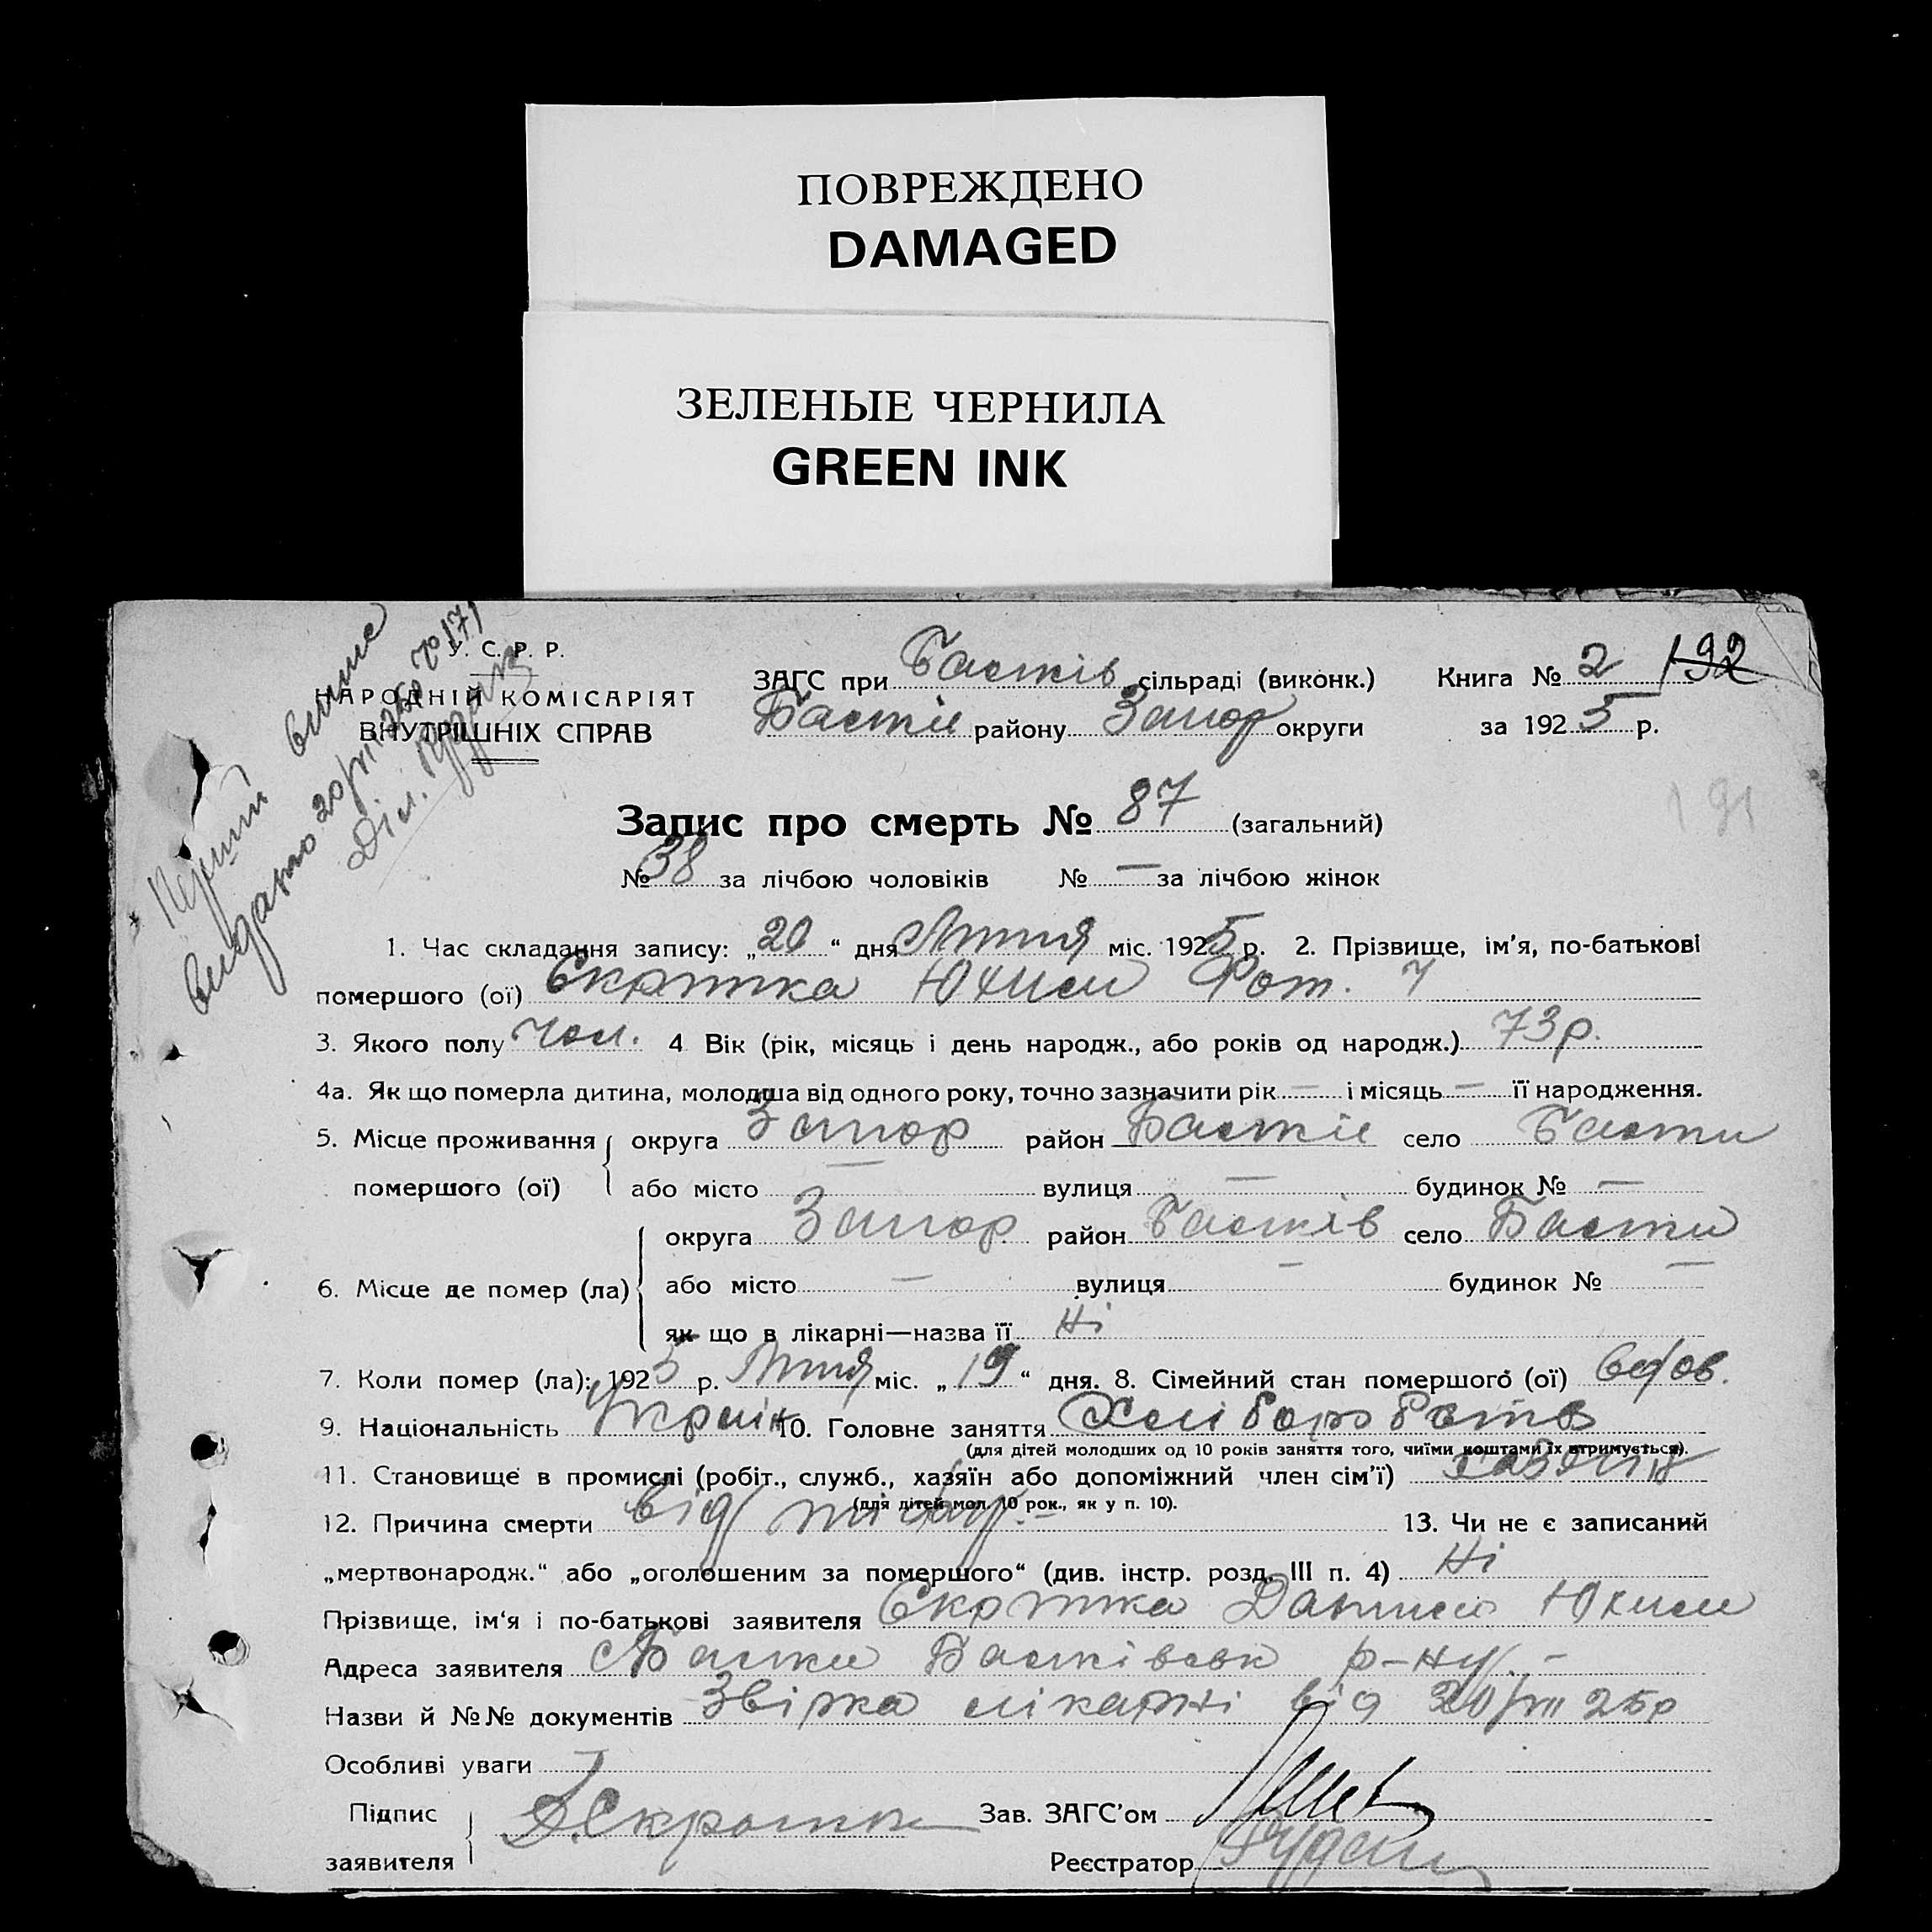 ПОВРЕЖДЕНО
DAMAGED
ЗЕЛЕНЫЕ ЧЕРНИЛА
GREEN INK
У. С. Р. Р.
НАРОДНІЙ КОМІСАРІЯТ
ВНУТРІШНІХ СПРАВ
видано 20/VII 25р № 171
ЗАГС при сільраді (виконк.) Книга № 2 192
району Запор округи за 1925 р.
191
Запис про смерть № 87 (загальний)
№ 38 за лічбою чоловіків № — за лічбою жінок
1. Час складання запису: „20“ дня Липня міс. 1925 р. 2. Прізвище, ім’я, по-батькові
помершого (ої) Юхим
3. Якого полу чол. 4 Вік (рік, місяць і день народж., або років од народж.) 73 р.
4а. Як що померла дитина, молодша від одного року, точно зазначити рік — і місяць — її народження.
5. Місце проживання округа Запор район село
помершого (ої) або місто — вулиця — будинок № —
округа Запор район село
6. Місце де помер (ла) або місто — вулиця — будинок № —
як що в лікарні—назва її Ні
7. Коли помер (ла): 1925 р. Липня міс. „19“ дня. 8. Сімейний стан помершого (ої) вдов.
9. Національність Україн 10. Головне заняття Хліборобств
(для дітей молодших од 10 років заняття того, чиїми коштами їх втримується).
11. Становище в промислі (робіт., служб., хазяїн або допоміжний член сім’ї) хазяїн
(для дітей мол. 10 рок., як у п. 10).
12. Причина смерти від 13. Чи не є записаний
„мертвонародж.“ або „оголошеним за помершого“ (див. інстр. розд. III п. 4) Ні
Прізвище, ім‘я і по-батькові заявителя Данило Юхим
Адреса заявителя р-ну. -
Назви й №№ документів лікарні від 20/VII 25р
Особливі уваги
Підпис Зав. ЗАГС’ом
заявителя Реєстратор